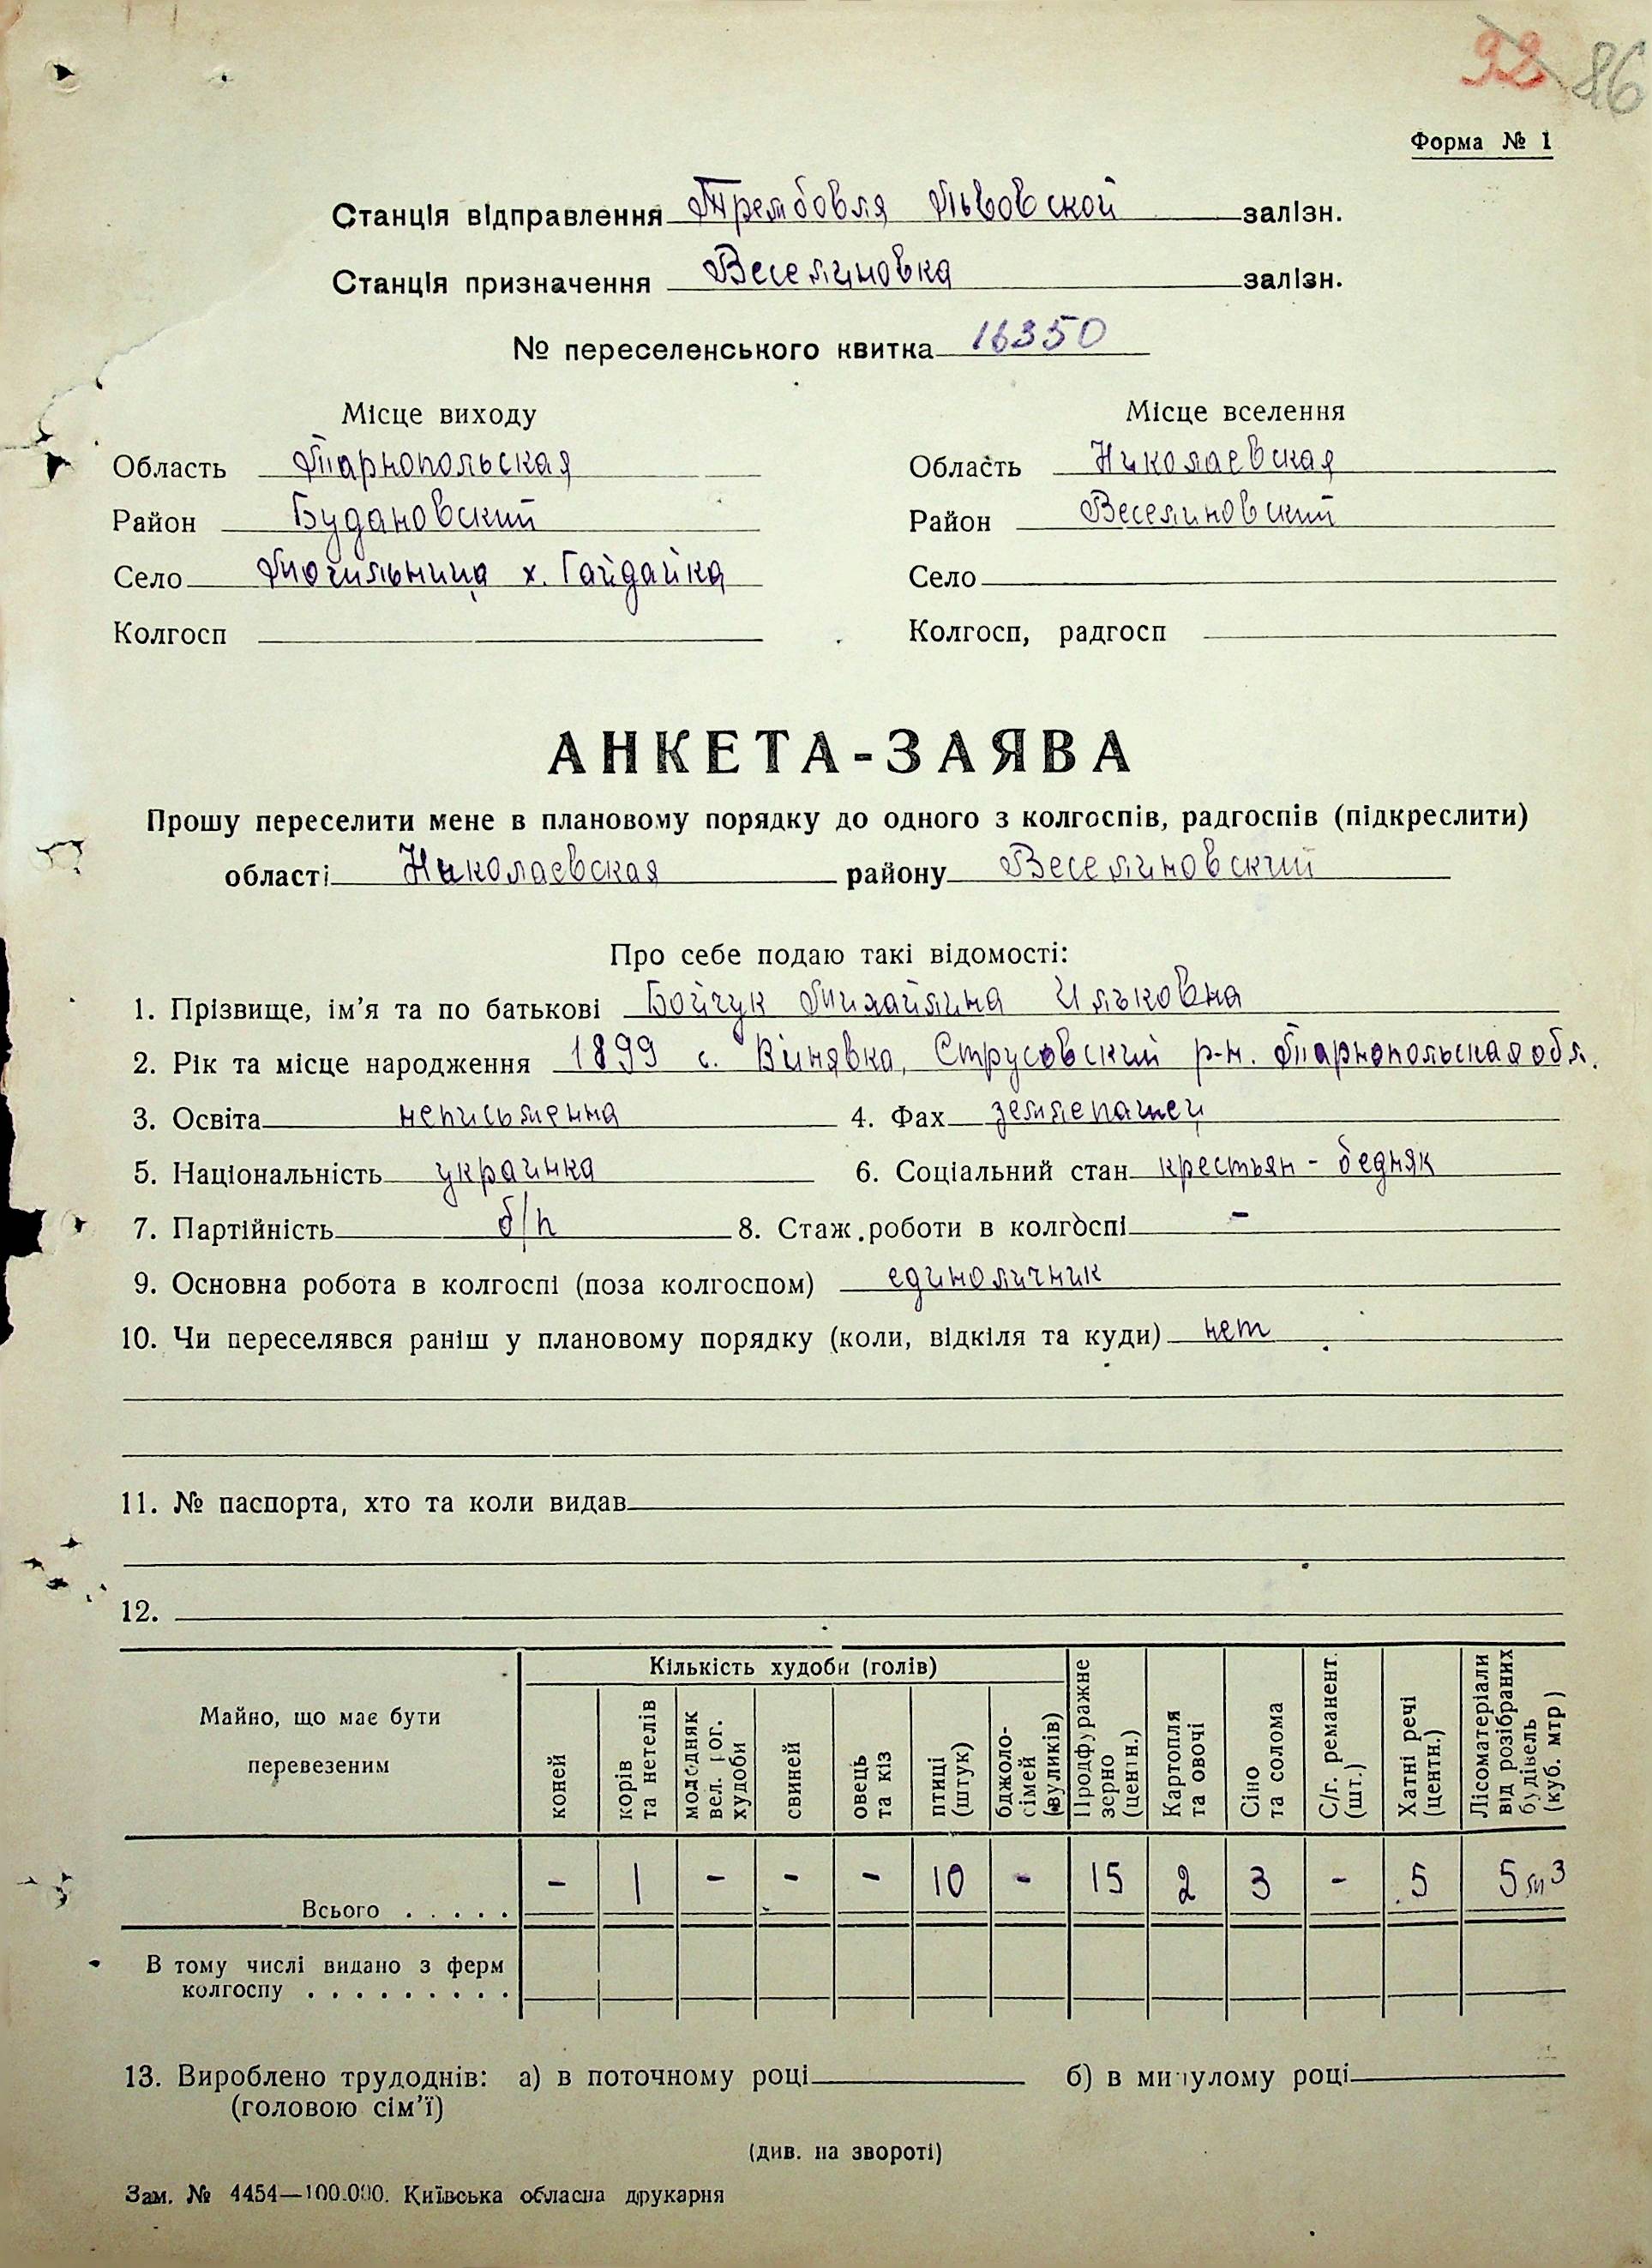 92 86
Форма № 1
Станція відправлення Трембовля Львовской залізн.
Станція призначення Веселиновка залізн.
№ переселенського квитка 16350
Місце виходу Місце вселення
Область Тарнопольская Область Николаевская
Район Будановский Район Веселиновский
Село Могильница х. Гайдайка Село
Колгосп Колгосп, радгосп
АНКЕТА-ЗАЯВА
Прошу переселити мене в плановому порядку до одного з колгоспів, радгоспів (підкреслити)
області Николаевская району Веселиновский
Про себе подаю такі відомості:
1. Прізвище, ім'я та по батькові Бойчук Михайлина Ильковна
2. Рік та місце народження 1899 с. Винявка, Струсовский р-н. Тарнопольская обл.
3. Освіта неписьменна 4. Фах землепашец
5. Національність украинка 6. Соціальний стан крестьян - бедняк
7. Партійність б/п 8. Стаж роботи в колгоспі -
9. Основна робота в колгоспі (поза колгоспом) единоличник
10. Чи переселявся раніш у плановому порядку (коли, відкіля та куди) нет
11. № паспорта, хто та коли видав
12.
Майно, що має бути перевезеним
Кількість худоби (голів)
коней
корів та нетелів
молодняк вел. рог. худоби
свиней
овець та кіз
птиці (штук)
бджоло-сімей (вуликів)
Продфуражне зерно (центн.)
Картопля та овочі
Сіно та солома
С/г. реманент. (шт.)
Хатні речі (центн.)
Лісоматеріали від розібраних будівель (куб. мтр)
Всього . . . . . - 1 - - - 10 - 15 2 3 - 5 5 м3
В тому числі видано з ферм
колгоспу . . . . . . . . .
13. Вироблено трудоднів: а) в поточному році б) в минулому році
(головою сім'ї)
(див. на звороті)
Зам. № 4454—100.000. Київська обласна друкарня